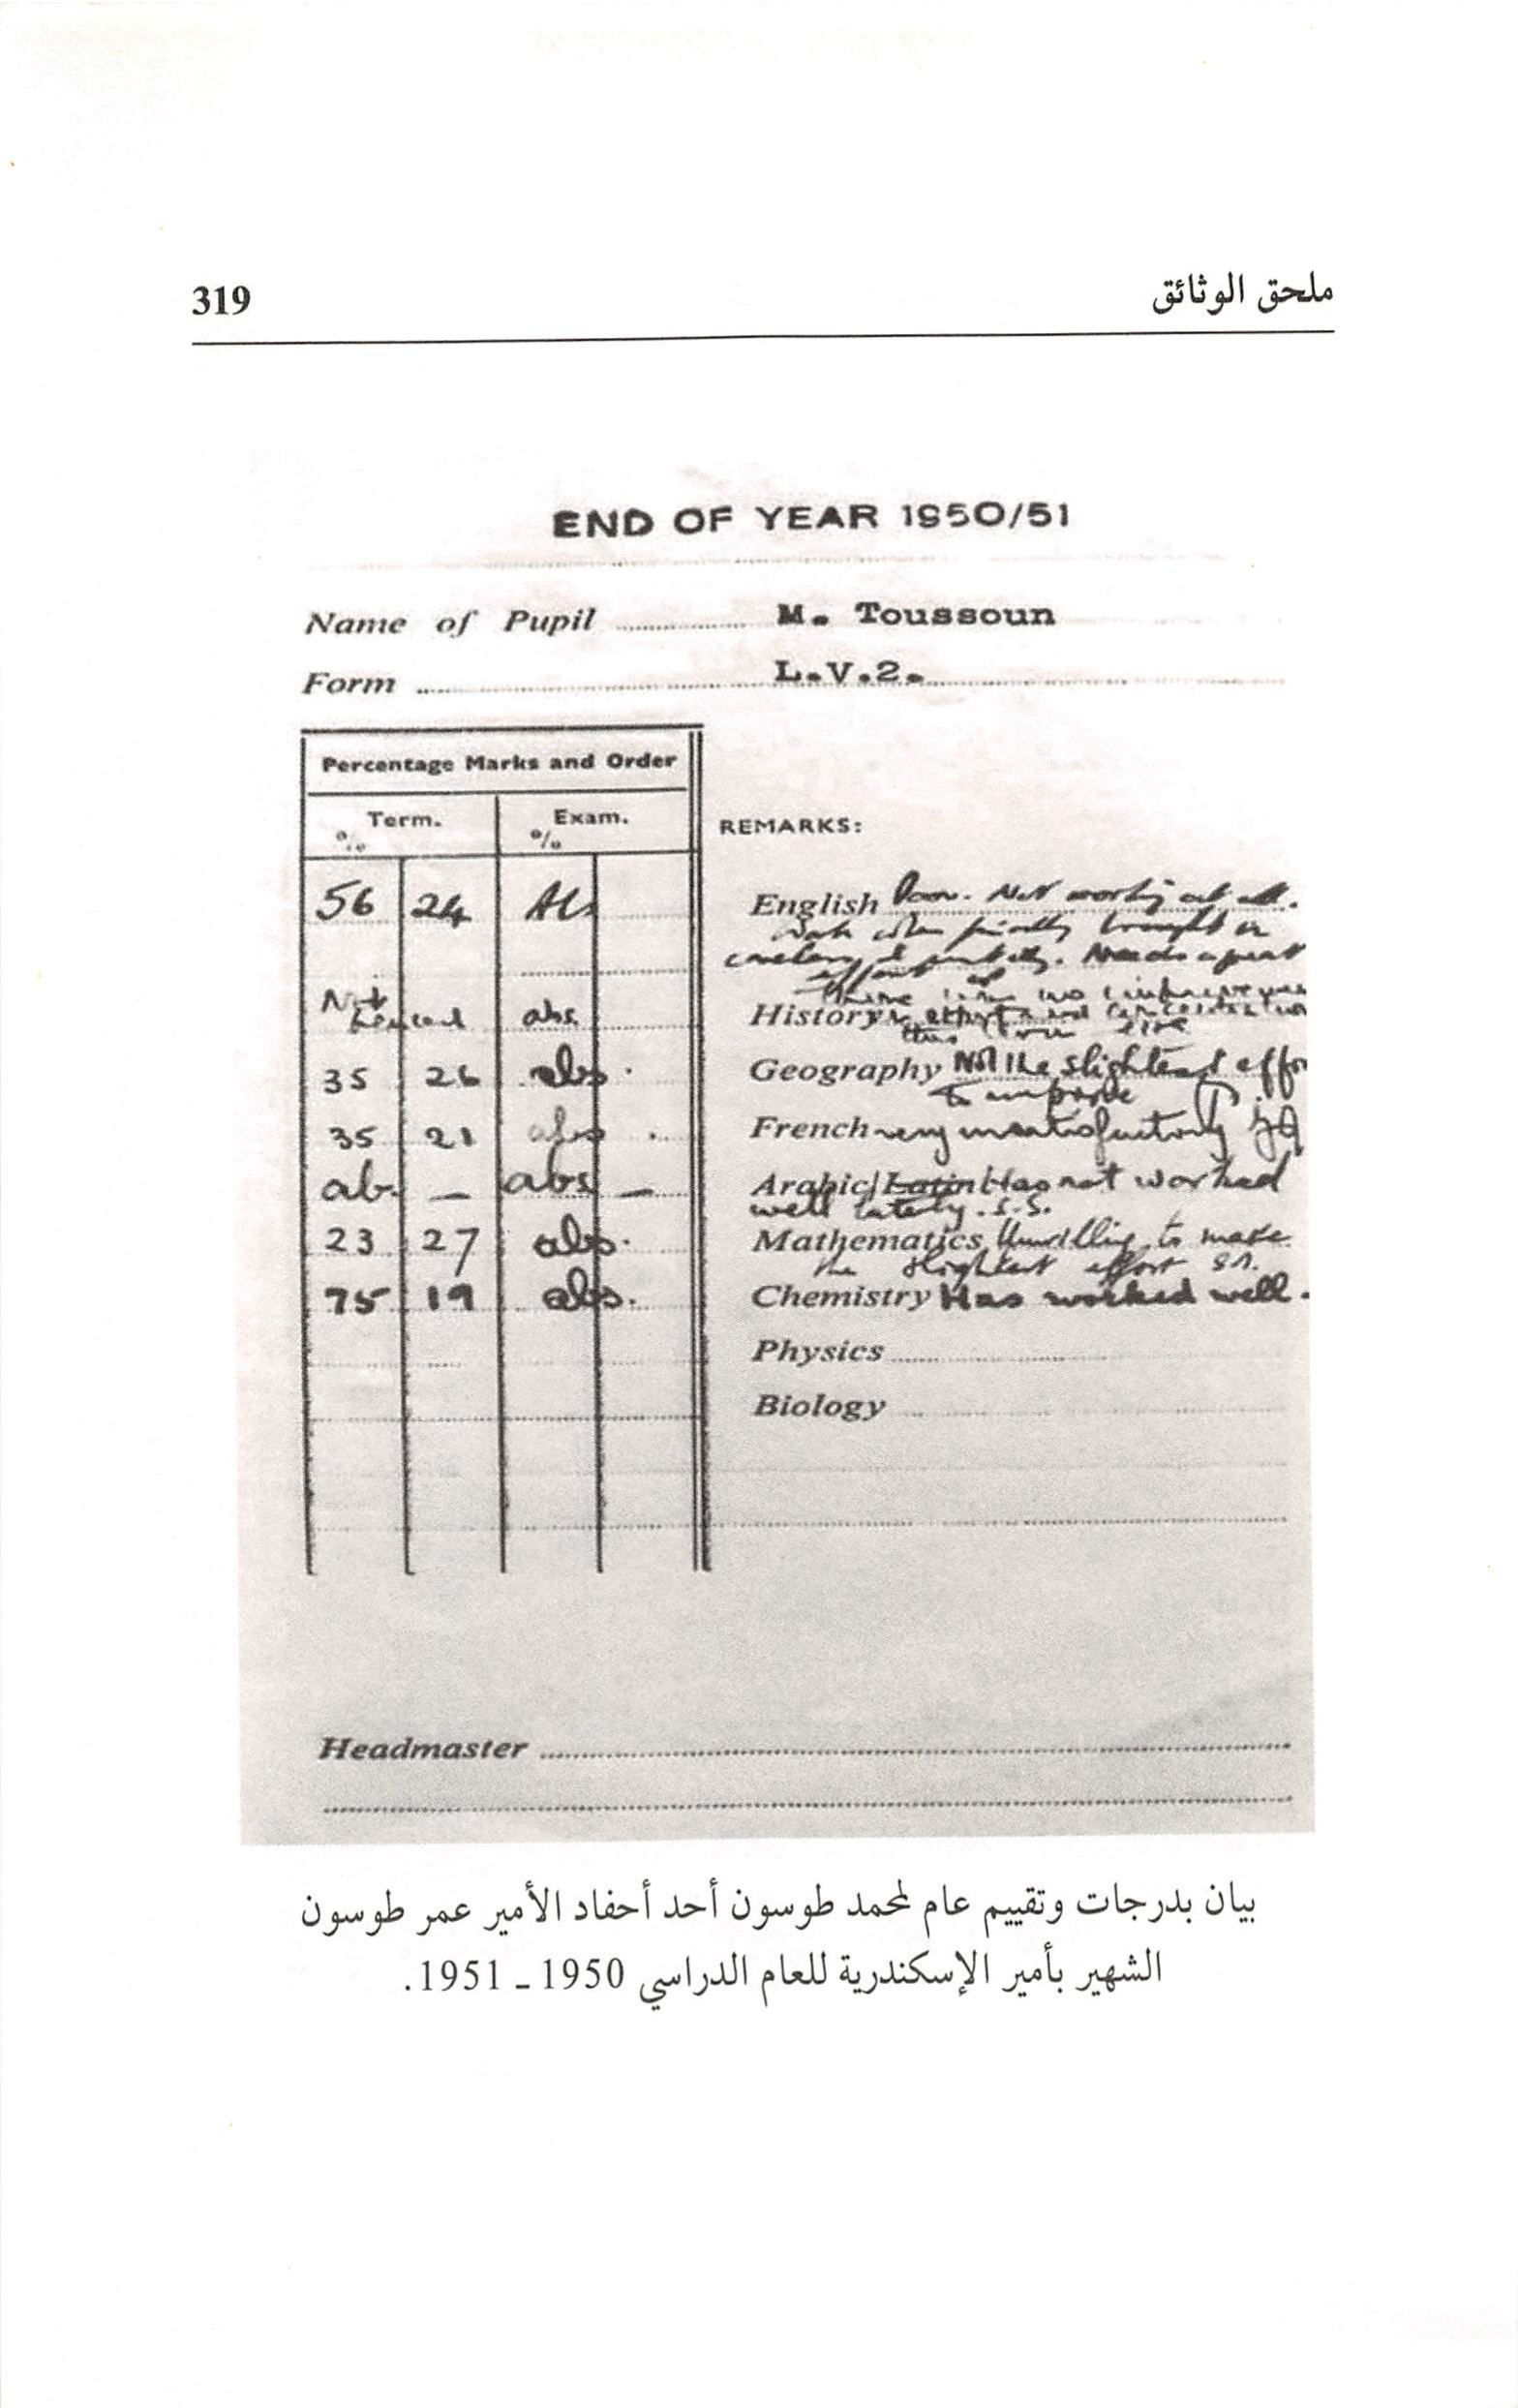 ملحق الوثائق 319
END OF YEAR 1950/51
Name of Pupil M. Toussoun
Form L.V.2.
Percentage Marks and Order
Term. Exam.
% %
REMARKS:
56 24 Abs English Poor. Not working at all.
Work when finally brought in
Needs a great
effort
Not abs. History There no
effort and concentration
this
35 26 abs. Geography Not the slightest effo
to improve
35 21 abs. French very unsatisfactory
ab. — abs — Arabic/Latin Has not worked
well lately. S.S.
23 27 abs. Mathematics Unwilling to make
the slightest effort
75 19 abs. Chemistry Has worked well.
Physics
Biology
Headmaster
بيان بدرجات وتقييم عام لمحمد طوسون أحد أحفاد الأمير عمر طوسون
الشهير بأمير الإسكندرية للعام الدراسي 1950 ـ 1951.